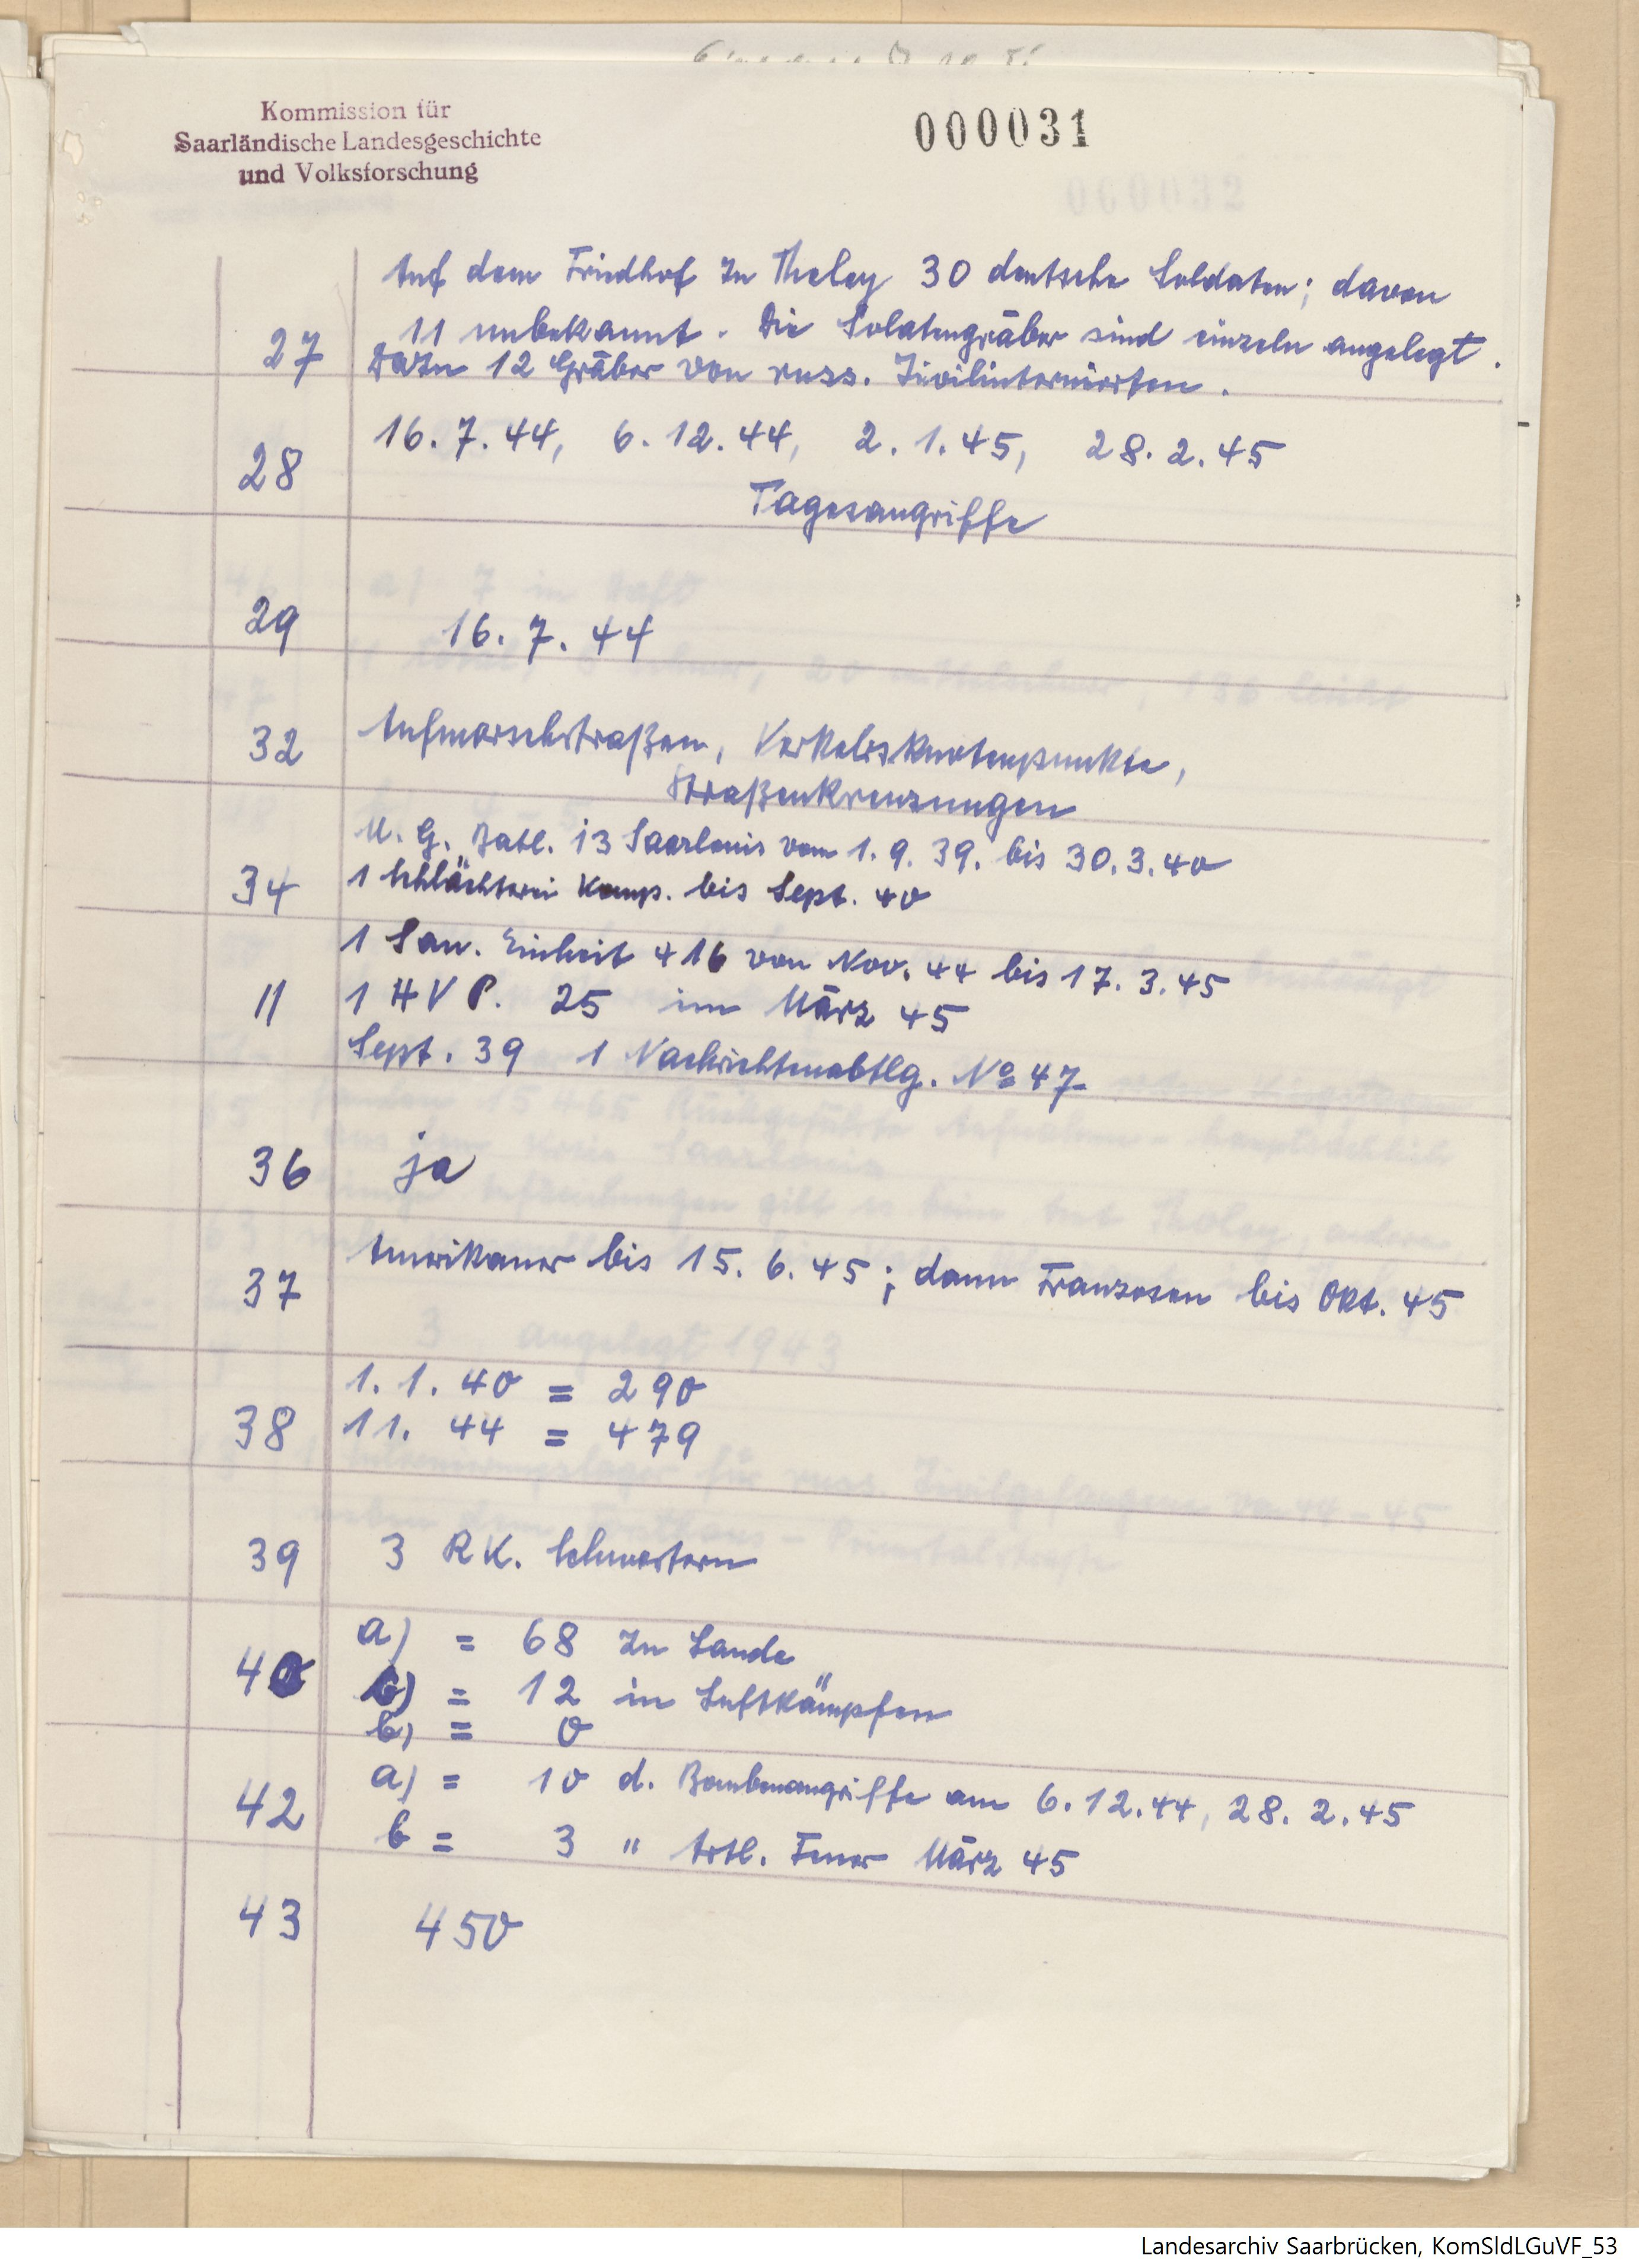 Kommission für
Saarländische Landesgeschichte
und Volksforschung
000031
Auf dem Friedhof zu Tholey 30 deutsche Soldaten; davon
27 11 unbekannt. Die Solatengräber sind einzeln angelegt.
Dazu 12 Gräber von russ. Zivilinternierten.
16.7.44, 6.12.44, 2.1.45, 28.2.45
28
Tagesangriffe
29 16.7.44
32 Aufmarschstraßen, Verkehrsknotenpunkte,
Straßenkreuzungen
M.G. Batl. 13 Saarlouis vom 1.9.39. bis 30.3.40
34 1 Schlächterei Komp. bis Sept. 40
1 San. Einheit 416 von Nov. 44 bis 17.3.45
11 1 HVP. 25 im März 45
Sept. 39 1 Nachrichtenabtlg. No 47
36 ja
37 Amerikaner bis 15.6.45; dann Franzosen bis Okt. 45
1.1.40 = 290
38 11. 44 = 479
39 3 RK. Schwestern
a) = 68 zu Lande
40 b) = 12 in Luftkämpfen
b) = 0
42 a) = 10 d. Bombenangriffe am 6.12.44, 28.2.45
b = 3 " Artl. Feuer März 45
43 450
Landesarchiv Saarbrücken, KomSldLGuVF_53